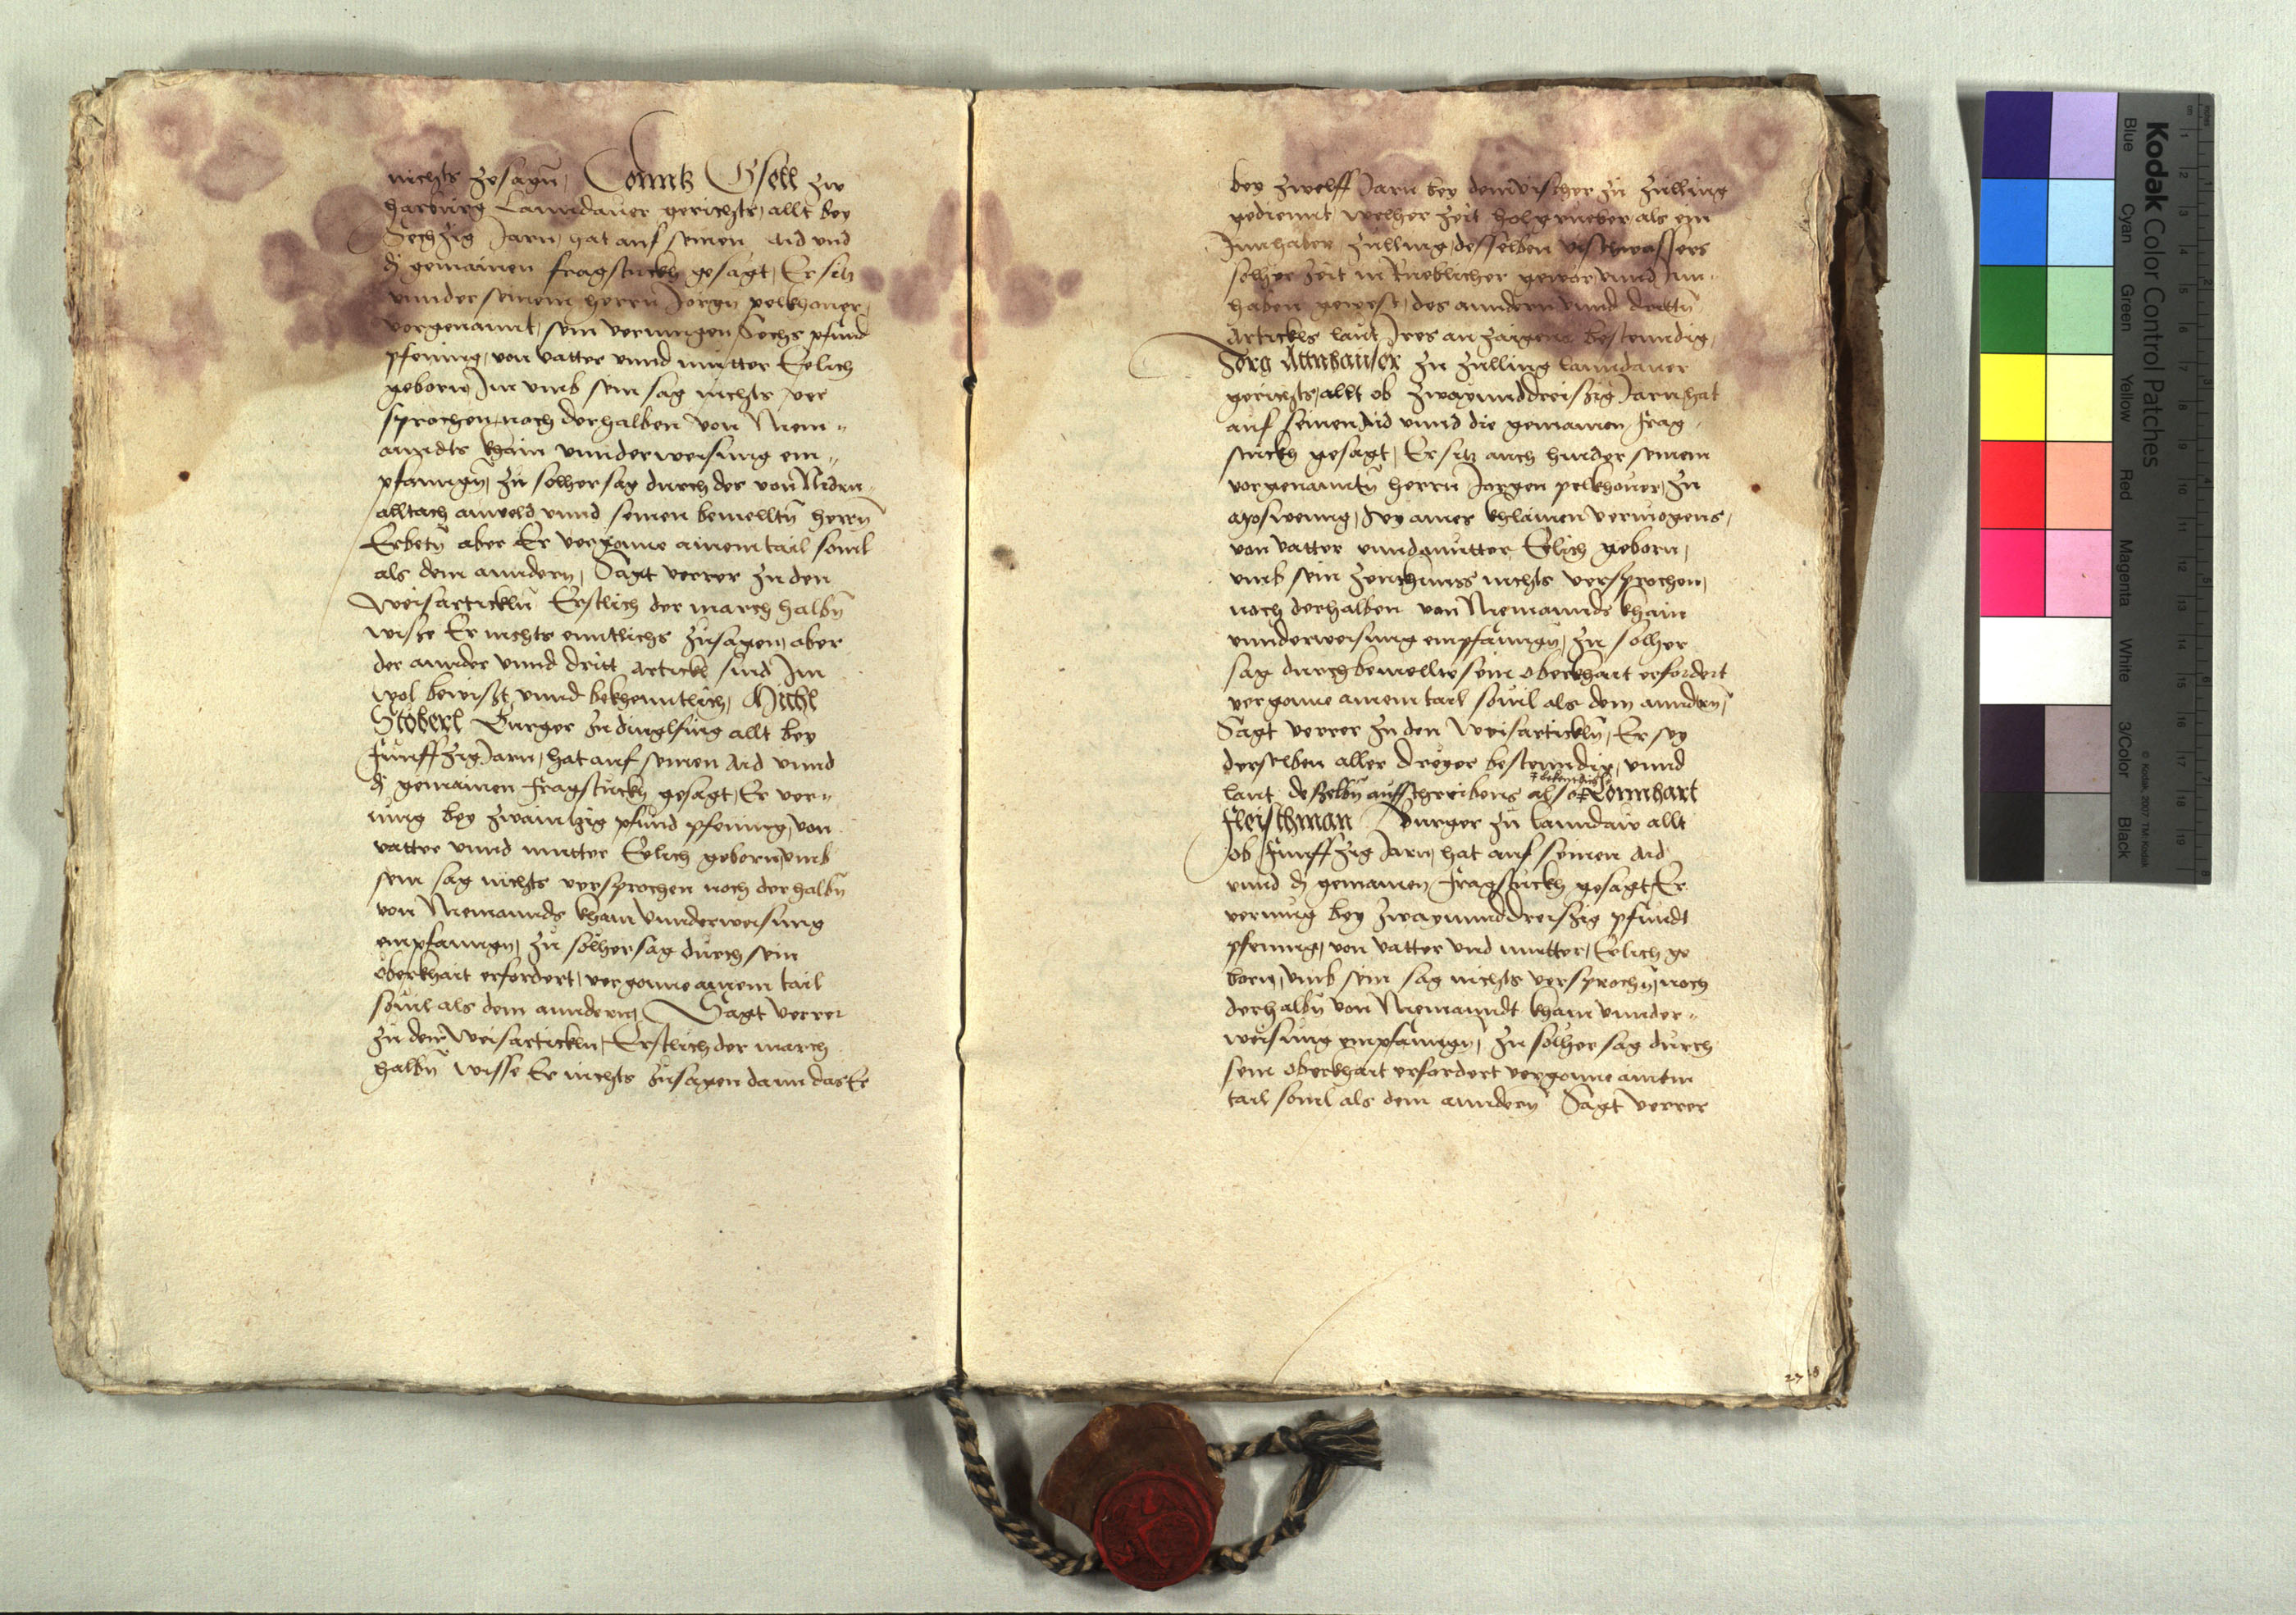 nichts zesagn̄, Conntz Gsell zw
Harburg Lanndauer gerichts, allt bey
Sechzig Jarn, hat auf seinen Aid vnd
dj gemainen fragstuckh gesagt, Er sitz
vnnder seinem herrn Jorgn pelkhouer,
vorgenannt, sein vermugen Sechs pfund
pfening, von vatter vnnd mutter Eelich
geborn, Im vmb sein sag nichts ver
sprochen, noch derhalben von Niem„
anndts khain vnnderweisung em„
pfanngn̄, zu solher sag durch der von Nidrn
alltach anweld vnnd seinen bemelltn̄ herrn̄
Erbetn̄ aber Er vergonne ainem tail souil
als dem anndern, Sagt verrer zu den
Weisartickln̄ Erstlich der march halbn̄
wisse Er nichts enntlichs zusagen, aber
der annder vnnd dritt artickl sind Im
wol bewisst vnnd bekhenntlich, Michl
Stöberl Burger zu dinglfing allt bey
funffzig Jarn, hat auf seinen Aid vnnd
dj gemainen fragstuckh gesagt, Er ver„
mug bey zwaintzig pfund pfening, von
vatter vnnd mutter Eelich geborn, vmb
sein sag nichts versprochen noch derhalbn̄
von Niemannds khain vnnderweisung
empfanngn, zu solher sag durch sein
oberkhait erfordert, vergonne ainem tail
souil als dem anndern, Sagt verrer
zu den Weisartickln, Erstlich der march
halbn̄ wisse Er nichts zusagen dann das Er
bey zwelff Jarn bey dem vischer zu zulling
gediennt, welher zeit holgrueber als ein
Innhaber zulling, desselben vischwassers
solher zeit in Rueblicher gewer vnnd Inn„
haben gewest, des anndern vnnd drittn̄
Artickls laut Ires anzaigens bestenndig,
Jorg Attnhauser zu zulling Lanndauer
gerichts, allt ob zwayunddreissig Jarn, hat
auf seinen Aid vnnd die gemainen frag
stuckh gesagt, Er sitz auch hinder seinem
vorgenantn̄ herrn Jorgen pelkhouer, zu
moswenng, sey aines khlainen vermogens,
von vatter vnnd mutter Eelich geborn,
vmb sein zeuckhnuss nichts versprochen,
noch derhalben von Niemannds khain
vnnderweisung empfanngn̄, zu solher
sag durch bemellte sein oberkhait erfordert
vergonne ainem tail souil als dem anndern̄,
Sagt verrer zu den Weisartickln̄, Er sey
derselben aller dreyer bestenndig, vnnd
laut desselbn̄ aufschreibens also Lennhart
fleischman Burger zu Lanndaw allt
ob funffzig Jarn, hat auf seinen Aid
vnnd dj gemainen fragstuckh gesagt, Er
vermug bey zwayunnddreissig pfundt
pfening, von vatter vnd mutter, Eelich ge
born, vmb sein sag nichts versprochn̄, noch
derhalbn̄ von Niemanndt khain vnnder„
weisung empfanngn̄, zu solher sag durch
sein oberkhait erfordert vergonne ainem
tail souil als dem anndern̄ Sagt verrer
27
Kodak Color Control Patches
Blue Cyan Green Yellow Red Magenta White 3/Color Black
© Kodak, 2007 TM: Kodak